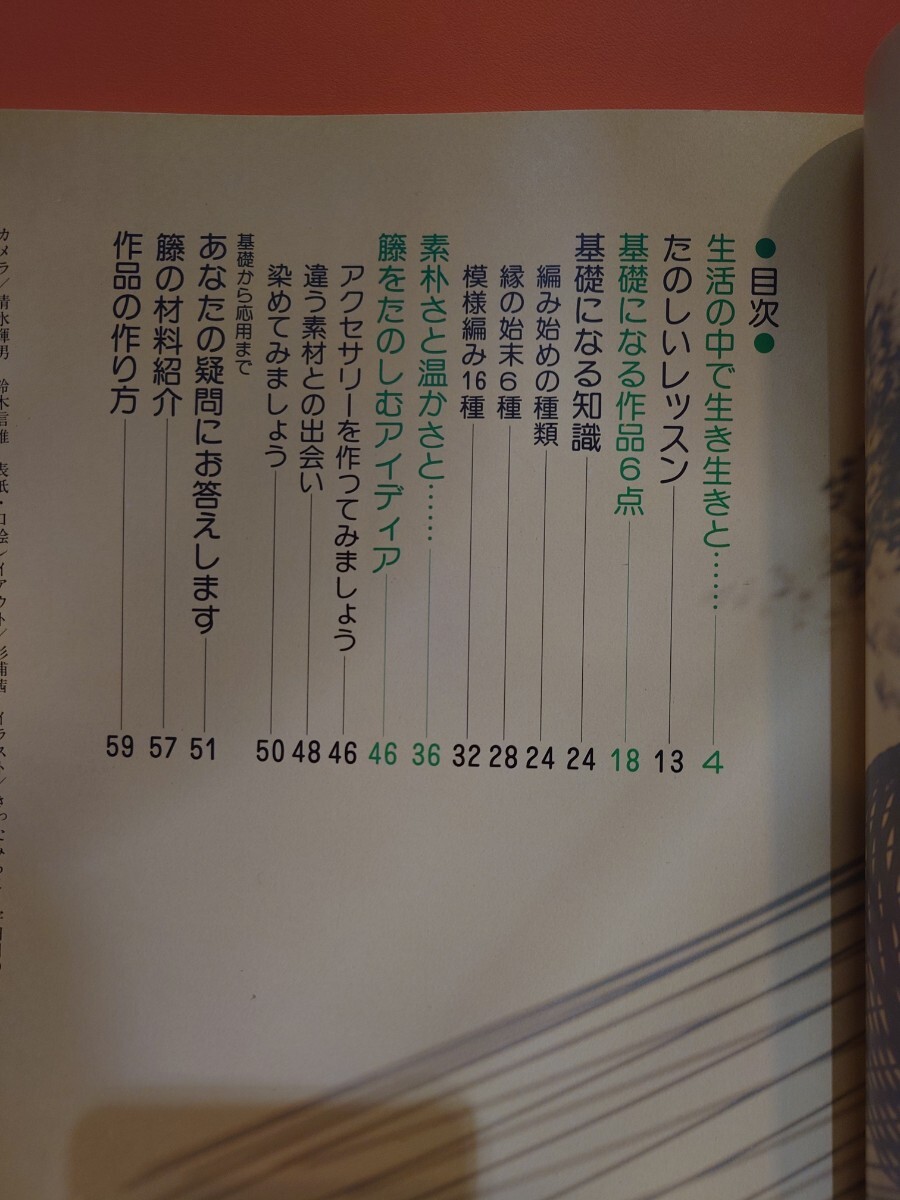 ●目次●
生活の中で生き生きと……4
たのしいレッスン 13
基礎になる作品6点 18
基礎になる知識 24
編み始めの種類 24
縁の始末6種 28
模様編み16種 32
素朴さと温かさと…… 36
籐をたのしむアイディア 46
アクセサリーを作ってみましょう 46
違う素材との出会い 48
染めてみましょう 50
基礎から応用まで
あなたの疑問にお答えします 51
籐の材料紹介 57
作品の作り方 59
カメラ/清水輝男 鈴木信雄 表紙・口絵レイアウト/杉浦茜 イラスト/